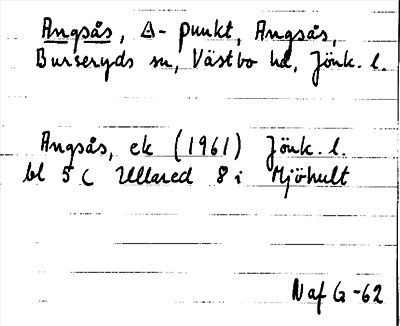 Angsås, △- punkt, Angsås,
Burseryds sn, Västbo hd, Jönk. l.
Angsås, ek (1961) Jönk. l.
bl 5 C Ullared 8 i Mjöhult
N af G -62